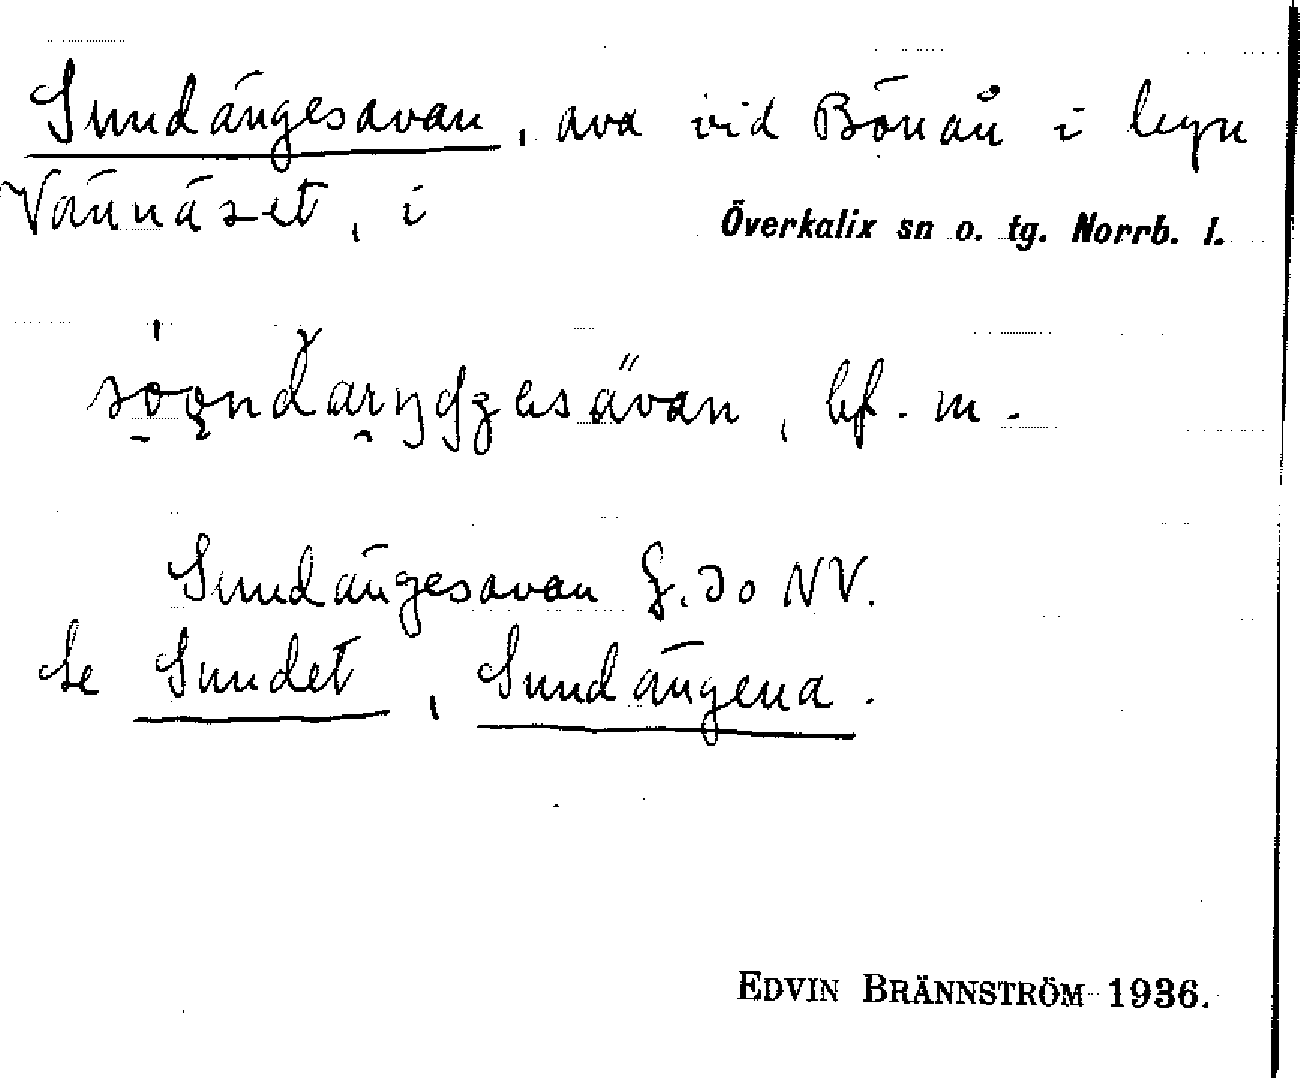 Sundängesavan, ava vid Bönån i byn
Vännäset, i
Överkalix sn o. tg. Norrb. l.
bf. m.
Sundängesavan G. 30 NV.
Se Sundet, Sundängena.
EDVIN BRÄNNSTRÖM 1936.